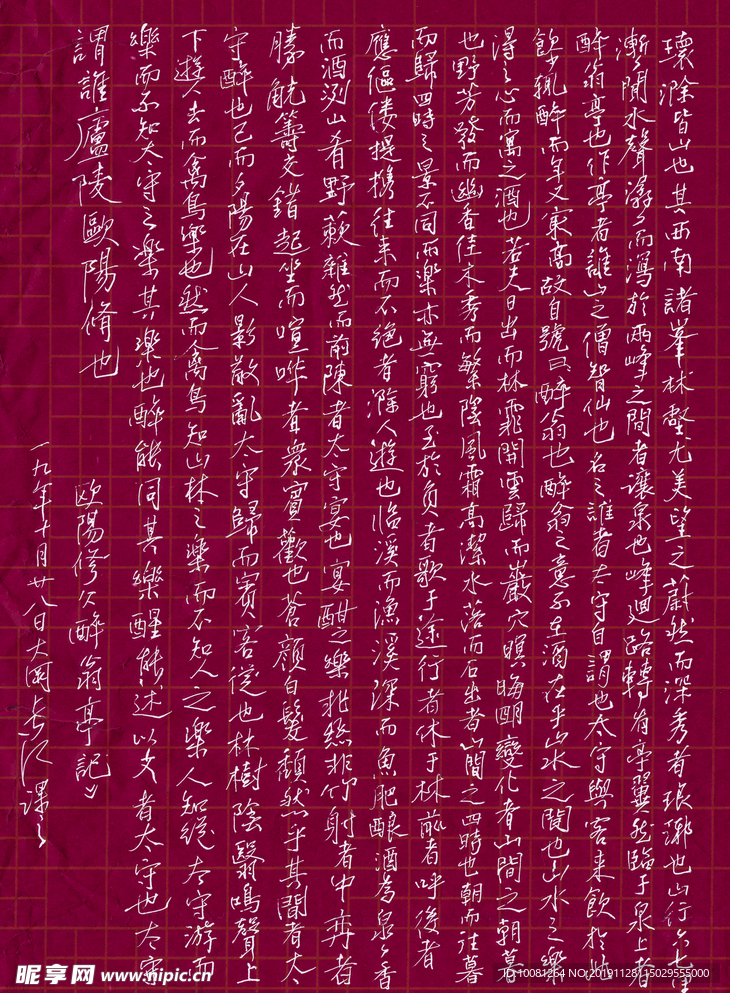 環滁皆山也其西南諸峯林壑尤美望之蔚然而深秀者琅琊也山行六七里
漸聞水聲潺潺而瀉於兩峰之間者讓泉也峰迴路轉有亭翼然臨于泉上者
醉翁亭也作亭者誰山之僧智仙也名之誰者太守自謂也太守與客來飲於此
飲少輒醉而年又最高故自號曰醉翁也醉翁之意不在酒在乎山水之間也山水之樂
得之心而寓之酒也若夫日出而林霏開雲歸而巖穴暝晦明變化者山間之朝暮
也野芳發而幽香佳木秀而繁陰風霜高潔水落而石出者山間之四時也朝而往暮
而歸四時之景不同而樂亦無窮也至於負者歌于途行者休于林前者呼後者
應傴僂提攜往來而不絕者滁人遊也臨溪而漁溪深而魚肥釀酒為泉泉香
而酒洌山肴野蔌雜然而前陳者太守宴也宴酣之樂非絲非竹射者中弈者
勝觥籌交錯起坐而喧嘩者衆賓歡也蒼顏白髮頹然乎其間者太
守醉也已而夕陽在山人影散亂太守歸而賓客從也林樹陰翳鳴聲上
下遊人去而禽鳥樂也然而禽鳥知山林之樂而不知人之樂人知從太守游而
樂而不知太守之樂其樂也醉能同其樂醒能述以文者太守也太守
謂誰廬陵歐陽脩也
欧陽修文醉翁亭記
一九年十月廿八日
昵享网 www.nipic.cn
ID:10081264 NO:20191128115029555000